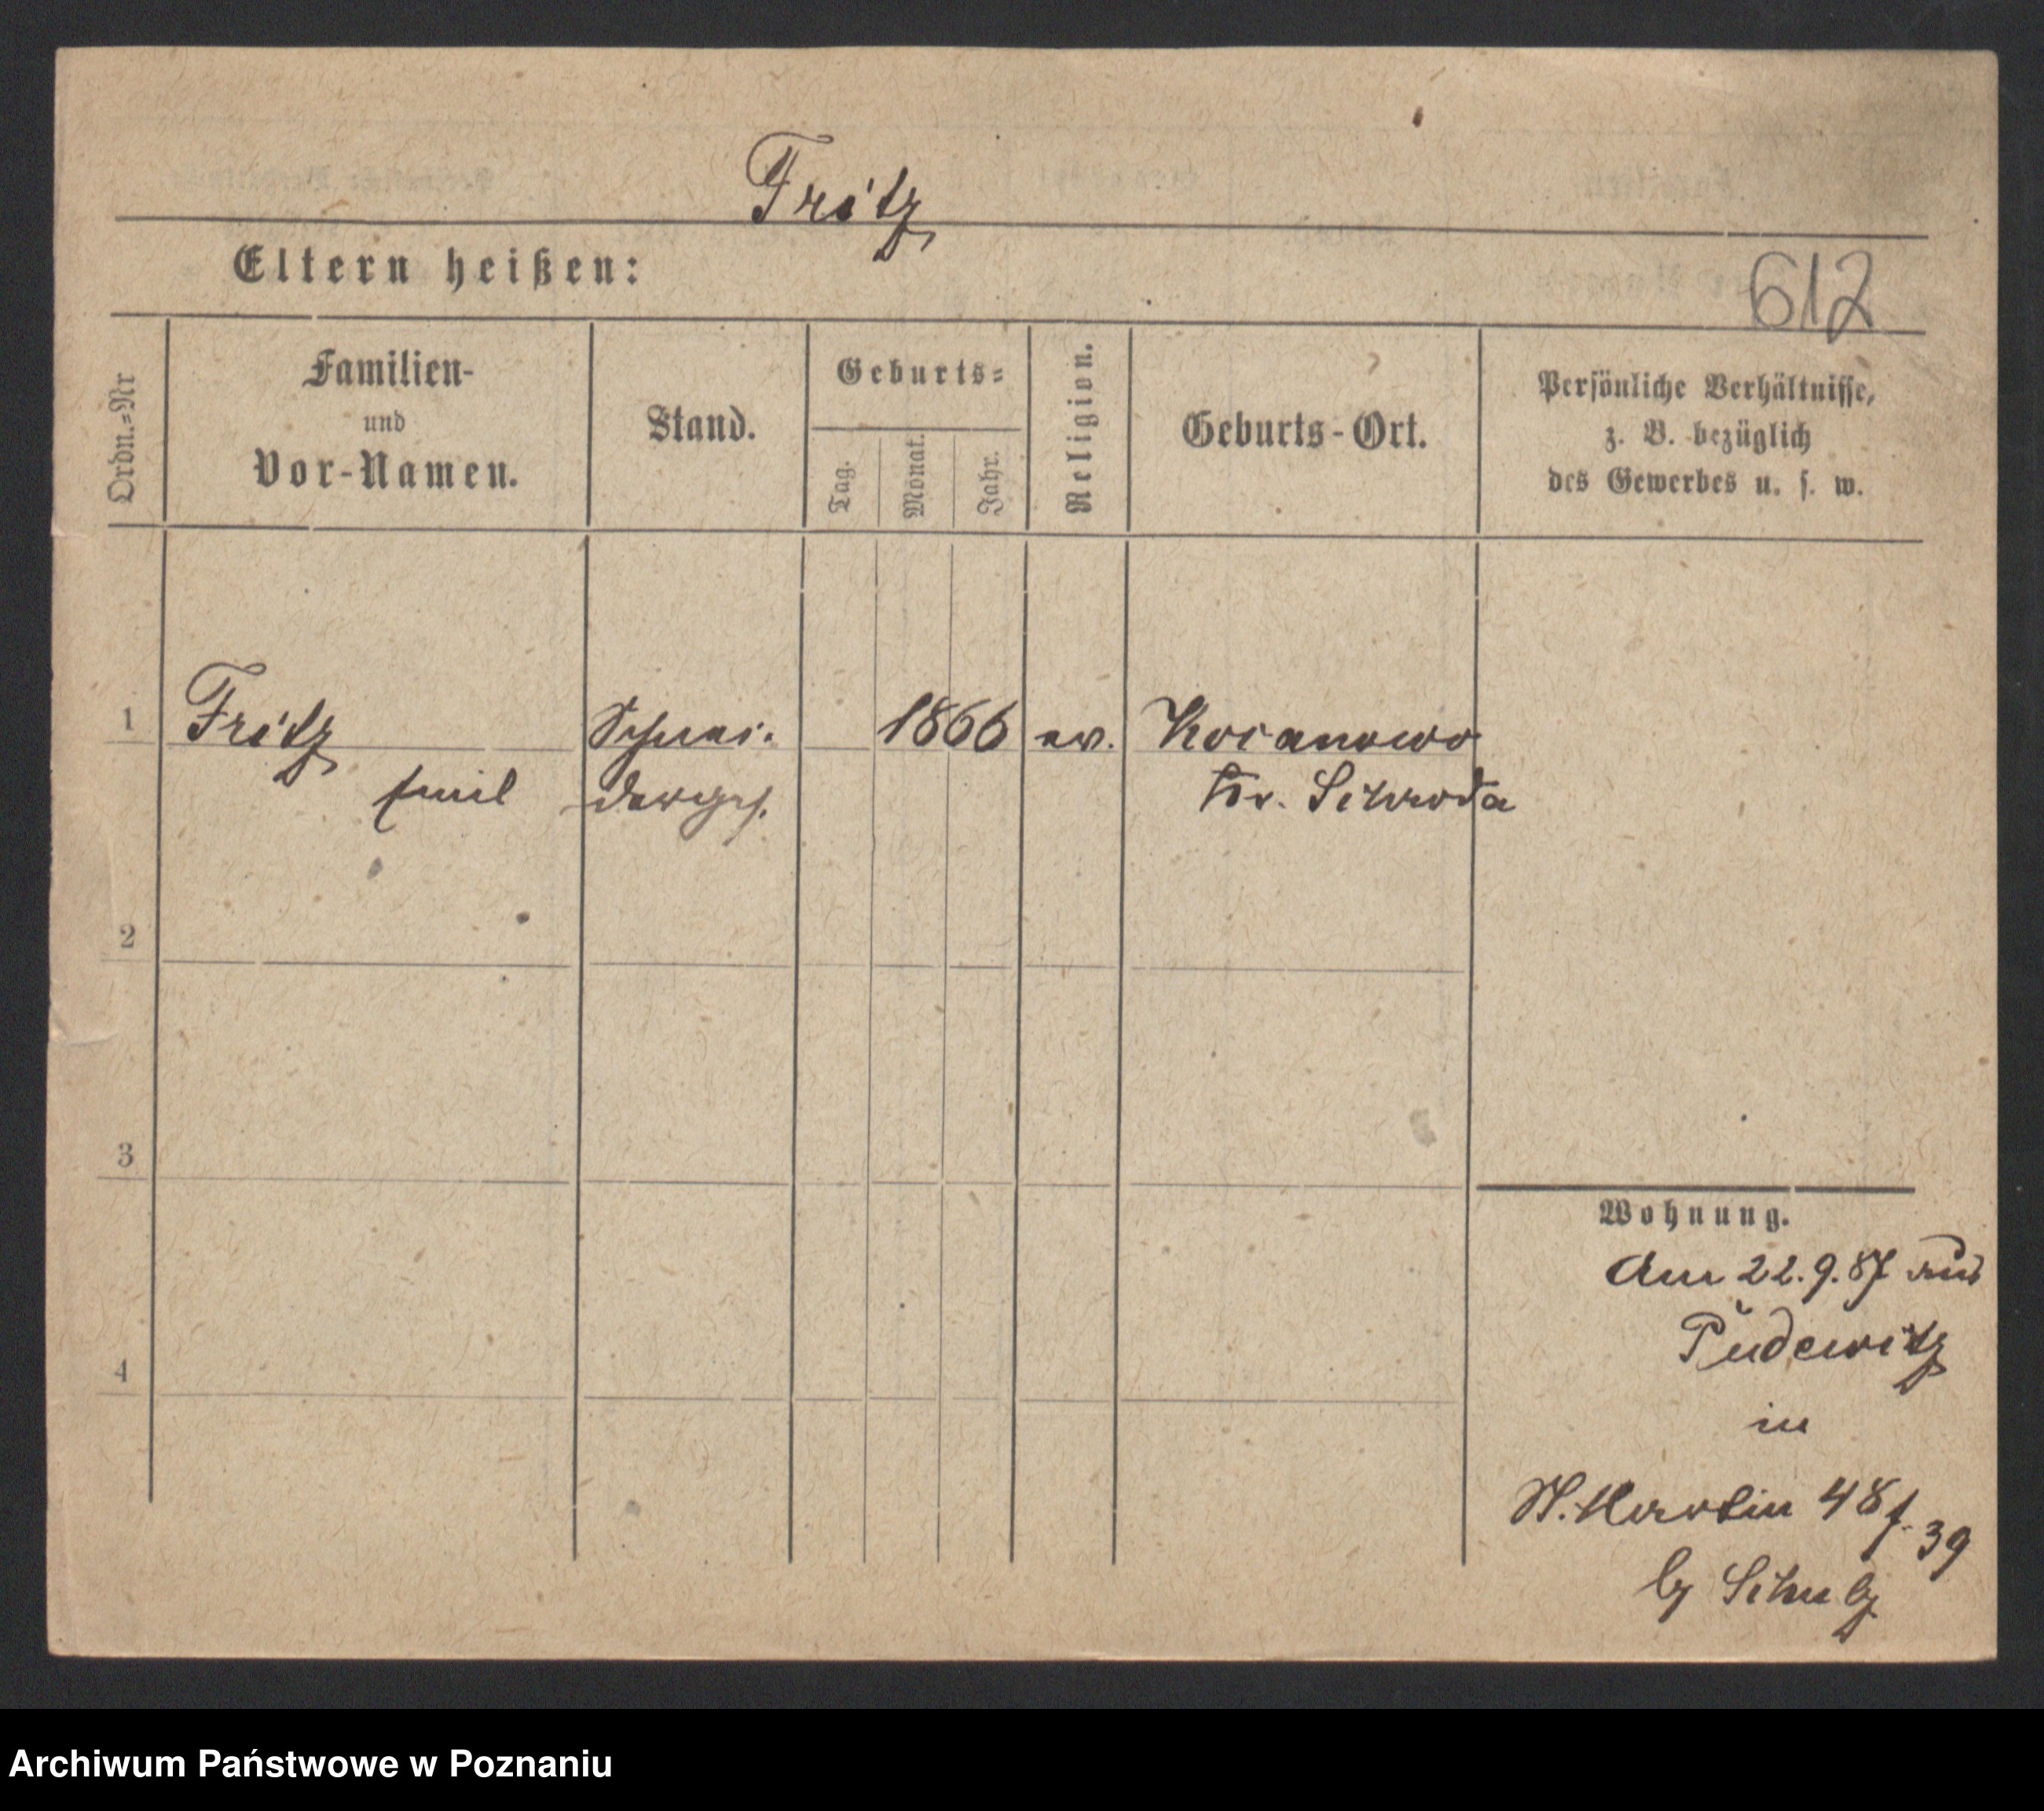 Fritz
Eltern heißen:
612
Ordn.=Nr
Familien-
und
Vor-Namen.
Stand.
Geburts=
Tag.
Monat.
Jahr.
Religion.
Geburts-Ort.
Persönliche Verhältnisse,
z. B. bezüglich
des Gewerbes u. s. w.
1 Fritz Schnei- 1866 ev. Kocanowo
Emil derges. Kr. Schroda
2
3
4
Wohnung.
Am 22.9.87 aus
Pudewitz
in
St. Martin 48 f.
39
by Schulz
Archiwum Państwowe w Poznaniu